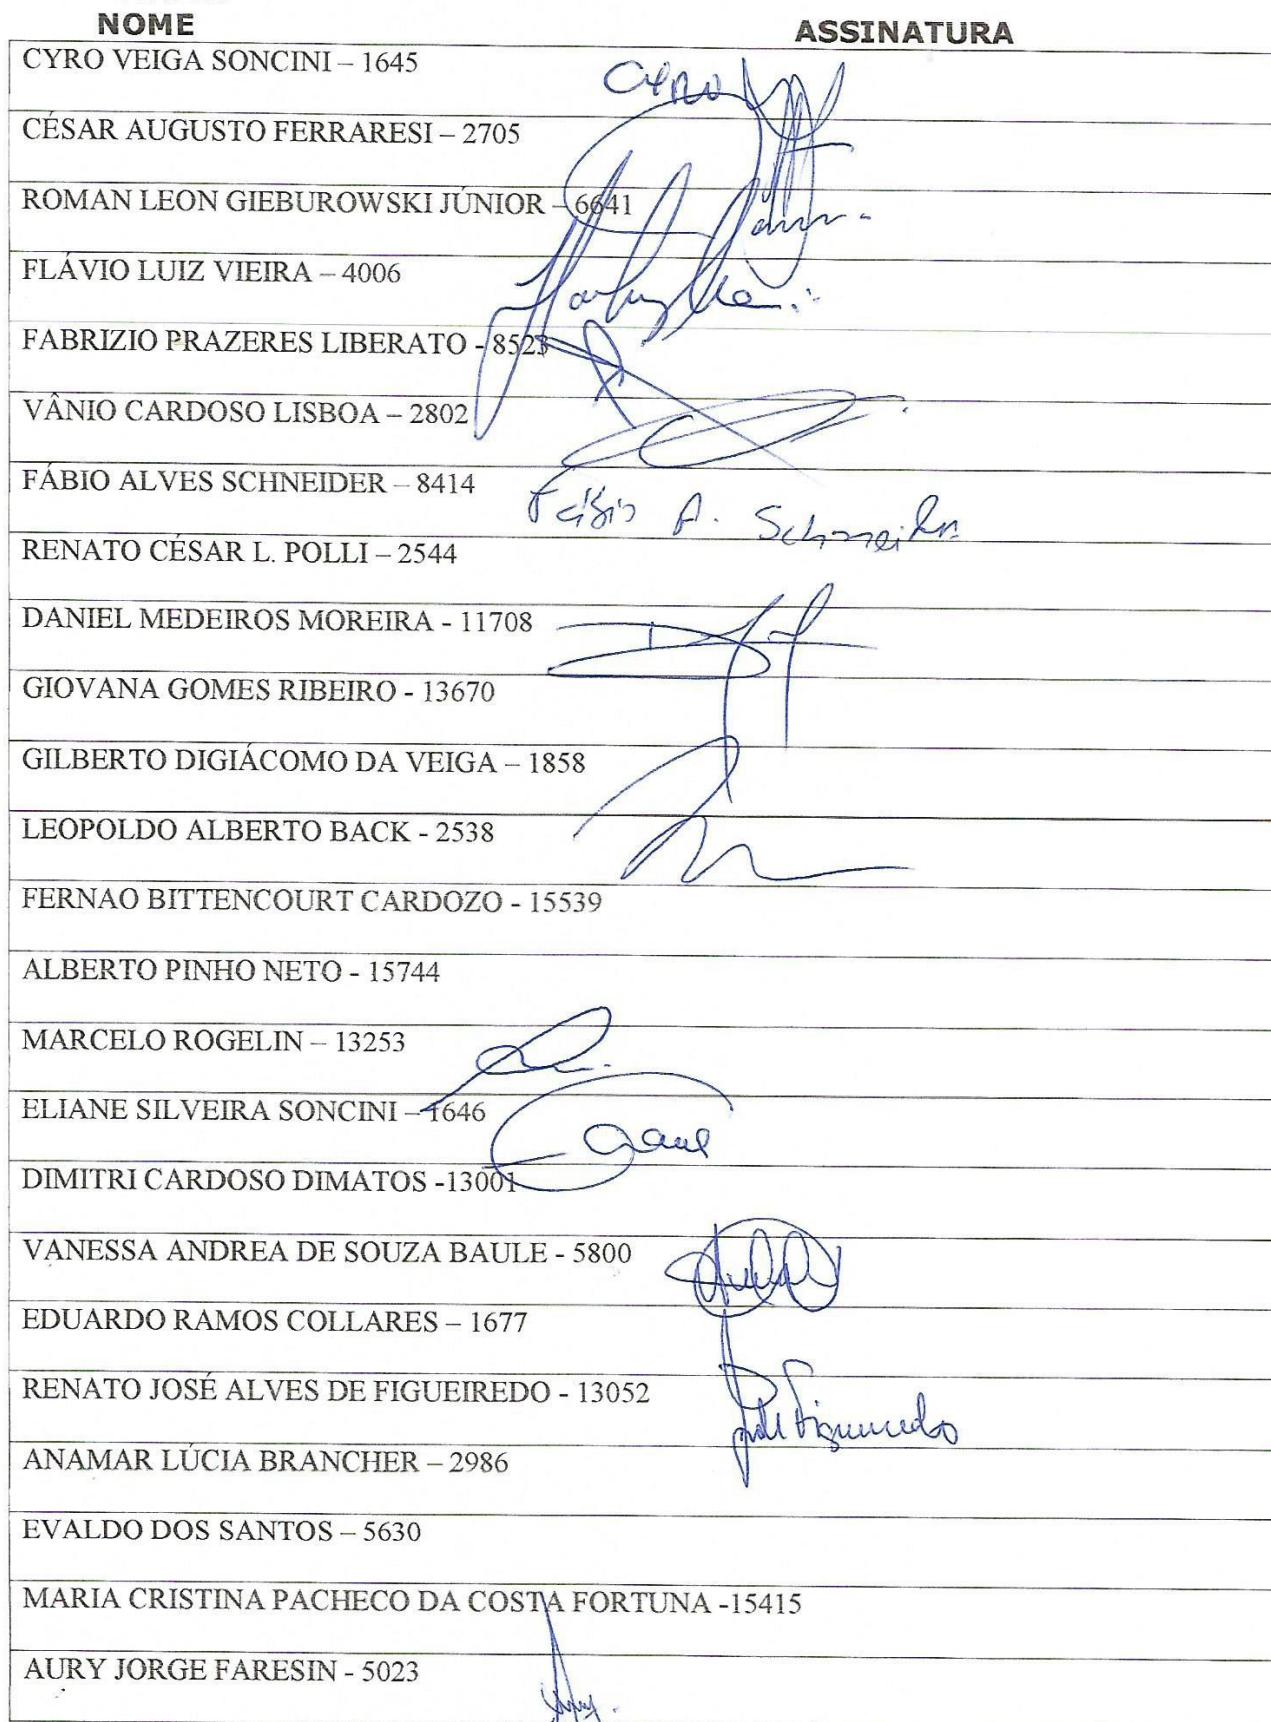 NOME ASSINATURA
CYRO VEIGA SONCINI – 1645 CYRO
CÉSAR AUGUSTO FERRARESI – 2705
ROMAN LEON GIEBUROWSKI JÚNIOR – 6641
FLÁVIO LUIZ VIEIRA – 4006
FABRIZIO PRAZERES LIBERATO - 8523
VÂNIO CARDOSO LISBOA – 2802
FÁBIO ALVES SCHNEIDER – 8414 Fábio A. Schneider
RENATO CÉSAR L. POLLI – 2544
DANIEL MEDEIROS MOREIRA - 11708
GIOVANA GOMES RIBEIRO - 13670
GILBERTO DIGIÁCOMO DA VEIGA – 1858
LEOPOLDO ALBERTO BACK - 2538
FERNAO BITTENCOURT CARDOZO - 15539
ALBERTO PINHO NETO - 15744
MARCELO ROGELIN – 13253
ELIANE SILVEIRA SONCINI – 1646
DIMITRI CARDOSO DIMATOS -13001
VANESSA ANDREA DE SOUZA BAULE - 5800
EDUARDO RAMOS COLLARES – 1677
RENATO JOSÉ ALVES DE FIGUEIREDO - 13052
ANAMAR LÚCIA BRANCHER – 2986
EVALDO DOS SANTOS – 5630
MARIA CRISTINA PACHECO DA COSTA FORTUNA -15415
AURY JORGE FARESIN - 5023